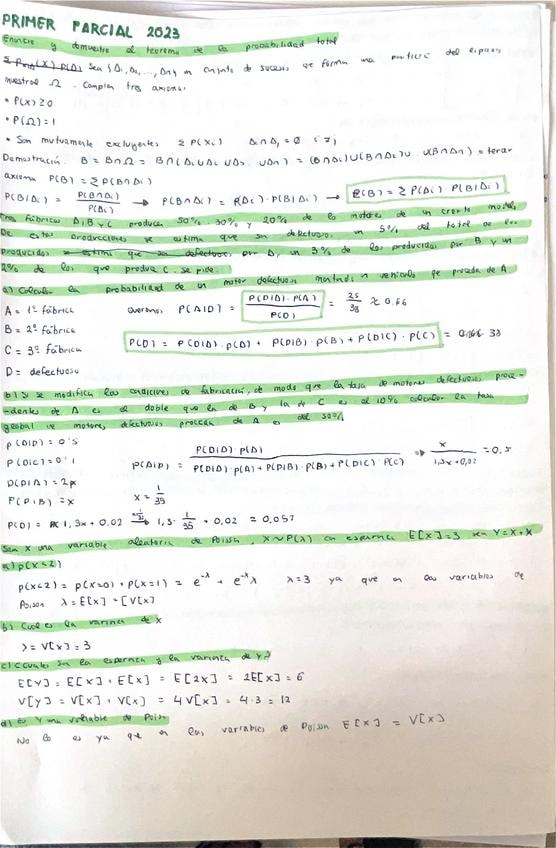 PRIMER PARCIAL 2023
Enuncie y demuestre el teorema de la probabilidad total
Sea {A₁, A₂, ..., An} un conjunto de sucesos que forman una partición del espacio
muestral Ω. Cumplen tres axiomas
• P(X) ≥ 0
• P(Ω) = 1
• Son mutuamente excluyentes Σ P(Xi)
Demostración. B = B∩Ω = B∩(A₁∪A₂∪A₃ ∪An) = (B∩A₁)∪(B∩A₂)∪ ∪(B∩An) = tercer
axioma P(B) = Σ P(B∩Ai)
P(B|Ai) = P(B∩Ai) / P(Ai) → P(B∩Ai) = P(Ai) · P(B|Ai) → P(B) = Σ P(Ai) · P(B|Ai)
Tres fábricas A, B y C producen 50%, 30% y 20% de los motores de un cierto modelo.
De estas producciones se estima que son defectuosos, un 5% del total de los
producidos por A, un 3% de los producidos por B y un
2% de los que produce C. Se pide.
a) Calcular la probabilidad de un motor defectuoso montado n vehículo que proceda de A
A = 1ª fábrica
B = 2ª fábrica
C = 3ª fábrica
D = defectuoso
Queremos P(A|D) = P(D|A) · P(A) / P(D) = 25/38 ≈ 0.66
P(D) = P(D|A) · P(A) + P(D|B) · P(B) + P(D|C) · P(C) = 38
b) Si se modifica las condiciones de fabricación, de modo que la tasa de motores defectuosos proce-
-dentes de A es el doble que la de B y la de C es el 10% calcular la tasa
global de motores defectuosos proceda de A es del 50%
P(A|D) = 0'5
P(D|C) = 0'1
P(D|A) = 2x
P(D|B) = x
P(A|D) = P(D|A) · P(A) / P(D|A) · P(A) + P(D|B) · P(B) + P(D|C) P(C) ⇒ x / 1,3x + 0,02 = 0.5
x = 1/35
P(D) = 1,3x + 0.02 → 1,3 · 1/35 + 0,02 = 0,057
Sea X una variable aleatoria de Poison, X∼P(λ) con esperanza E[X]=3 sea Y=X+X
a) p(x<2)
p(x<2) = p(x=0) + P(x=1) = e^-λ + e^-λ λ λ=3 ya que en las variables de
Poison λ = E[x] = [V[x]
b) Cual es la varinza de X
λ = V[x] = 3
c) Cuales son la esperanza y la varinza de Y?
E[Y] = E[X] + E[X] = E[2X] = 2E[X] = 6
V[Y] = V[X] + V[X] = 4V[X] = 4·3 = 12
d) es Y una variable de Poison
No lo es ya que en las variables de Poison E[X] = V[X]